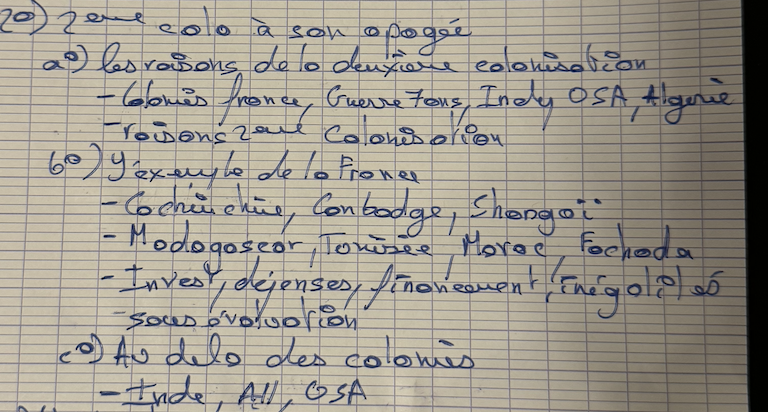 2°) 2eme colo à son apogée
a°) les raisons de la deuxième colonisation
- Colonies france, Guerre 7ans, Indp USA, Algerie
- raisons 2eme Colonisation
b°) l'exemple de la France
- Cochinchine, Cambodge, Shangaï
- Madagascar, Tunisie, Maroc, Fachoda
- Invest, dépenses, financement, inégalités
- sous évaluation
c°) Au dela des colonies
- Inde, All, USA